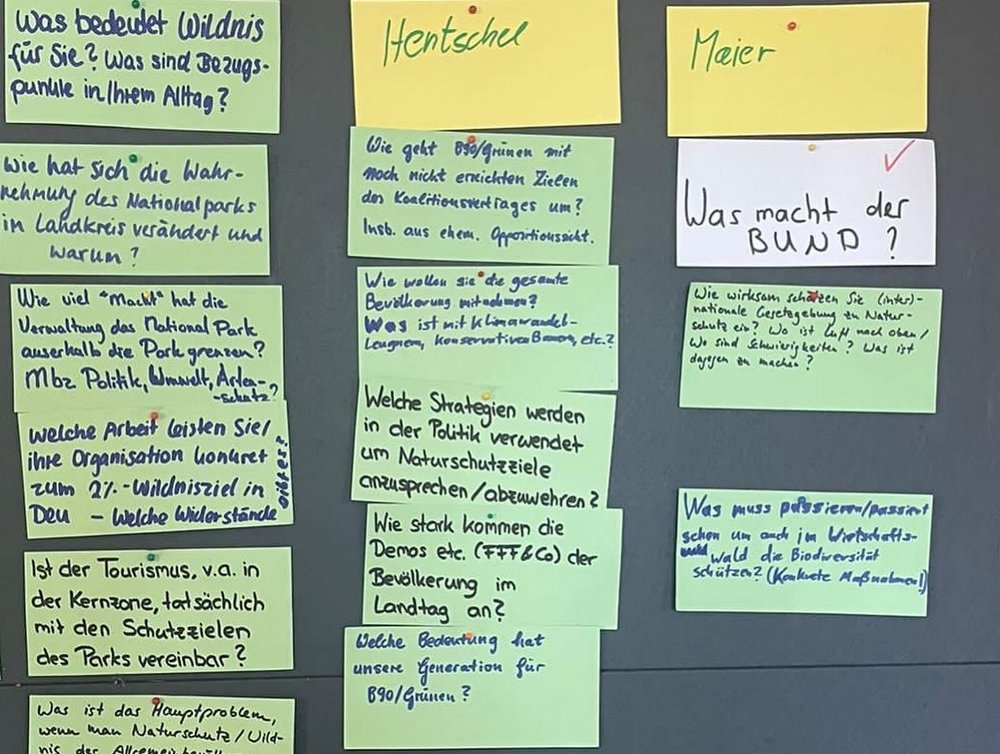 Was bedeutet Wildnis
für Sie? Was sind Bezugs-
punkte in Ihrem Alltag?
Wie hat sich die Wahr-
nehmung des Nationalparks
im Landkreis verändert und
warum?
Wie viel "Macht" hat die
Verwaltung das National Park
auserhalb die Park grenzen?
Mbz Politik, Umwelt, Arten-
-schutz?
Welche Arbeit leisten Sie/
ihre Organisation konkret
zum 2%-Wildnisziel in
Deu - Welche Widerstände
gibt es?
Ist der Tourismus, v.a. in
der Kernzone, tatsächlich
mit den Schutzzielen
des Parks vereinbar?
Was ist das Hauptproblem,
wenn man Naturschutz/Wild-
nis der
Hentschel
Wie geht B90/Grünen mit
noch nicht erreichten Zielen
des Koalitionsvertrages um?
Insb. aus ehem. Oppositionssicht.
Wie wollen sie die gesamte
Bevölkerung mitnehmen?
Was ist mit Klimawandel-
Leugnern, konservativen Bauern, etc.?
Welche Strategien werden
in der Politik verwendet
um Naturschutzziele
anzusprechen/abzuwehren?
Wie stark kommen die
Demos etc. (FFF&Co) der
Bevölkerung im
Landtag an?
Welche Bedeutung hat
unsere Generation für
B90/Grünen?
Maier
Was macht der
BUND?
Wie wirksam schätzen Sie (inter)-
nationale Gesetzgebung zu Natur-
schutz ein? Wo ist Luft nach oben/
Wo sind Schwierigkeiten? Was ist
dagegen zu machen?
Was muss passieren/passiert
schon um auch im Wirtschafts-
wald die Biodiversität
schützen? (Konkrete Maßnahmen!)